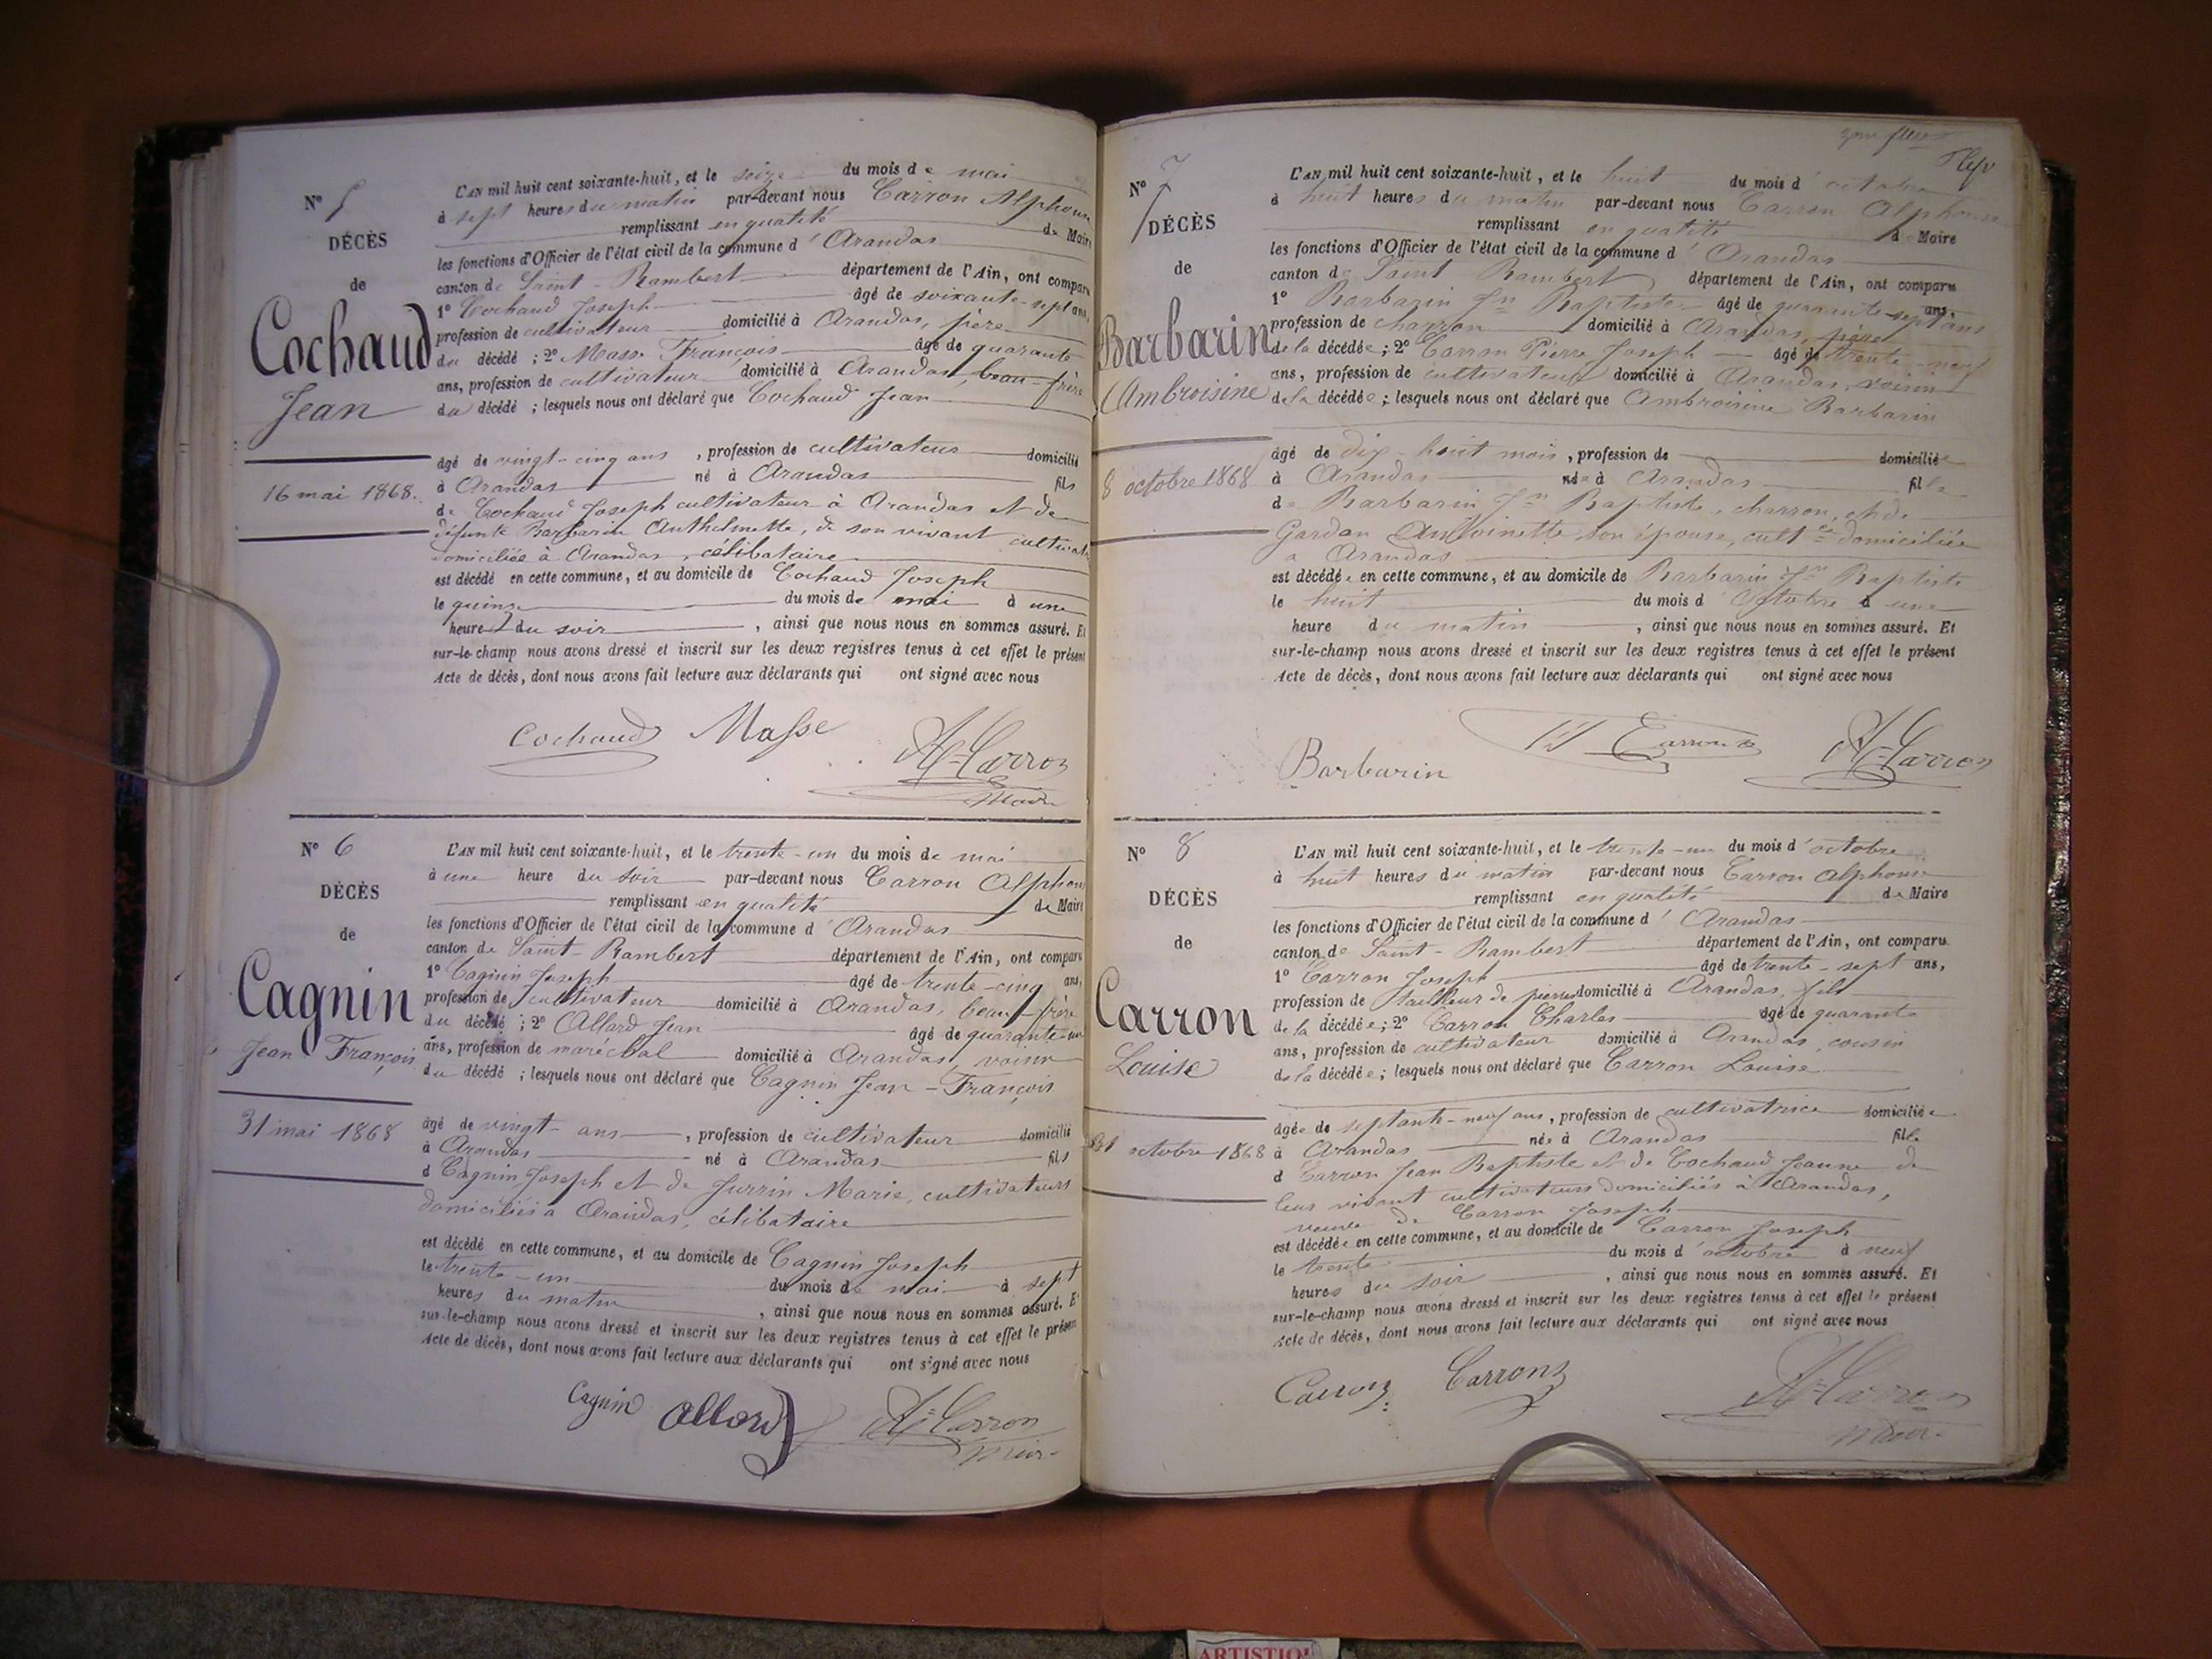 N° 5
DÉCÈS
de
Cochaud
Jean
16 mai 1868.
L'AN mil huit cent soixante-huit, et le seize du mois de mai
à sept heures du matin par-devant nous Carron Alphonse
remplissant en qualité de Maire
les fonctions d'Officier de l'état civil de la commune d'Arandas
canton de Saint-Rambert département de l'Ain, ont comparu
1° Cochaud Joseph âgé de soixante-sept ans,
profession de cultivateur domicilié à Arandas, père
du décédé ; 2° Masse François âgé de quarante
ans, profession de cultivateur domicilié à Arandas, beau-frère
du décédé ; lesquels nous ont déclaré que Cochaud Jean
âgé de vingt-cinq ans, profession de cultivateur domicilié
à Arandas né à Arandas fils
de Cochaud Joseph cultivateur à Arandas et de
défunte Barbarin Anthelmette, de son vivant cultivat
domiciliée à Arandas, célibataire
est décédé en cette commune, et au domicile de Cochaud Joseph
le quinze du mois de mai à une
heure du soir, ainsi que nous nous en sommes assuré. Et
sur-le-champ nous avons dressé et inscrit sur les deux registres tenus à cet effet le présent
Acte de décès, dont nous avons fait lecture aux déclarants qui ont signé avec nous
Cochaud Masse A. Carron
Maire
N° 6
DÉCÈS
de
Cagnin
Jean François
31 mai 1868
L'AN mil huit cent soixante-huit, et le trente-un du mois de mai
à une heure du soir par-devant nous Carron Alphons
remplissant en qualité de Maire
les fonctions d'Officier de l'état civil de la commune d'Arandas
canton de Saint-Rambert département de l'Ain, ont comparu
1° Cagnin Joseph âgé de trente-cinq ans,
profession de cultivateur domicilié à Arandas, beau-frère
du décédé ; 2° Allard Jean âgé de quarante-un
ans, profession de maréchal domicilié à Arandas, voisin
du décédé ; lesquels nous ont déclaré que Cagnin Jean-François
âgé de vingt ans, profession de cultivateur domicilié
à Arandas né à Arandas fils
d Cagnin Joseph et de Jurrin Marie, cultivateurs
domiciliés à Arandas, célibataire
est décédé en cette commune, et au domicile de Cagnin Joseph
le trente-un du mois de mai à sept
heures du matin, ainsi que nous nous en sommes assuré. Et
sur-le-champ nous avons dressé et inscrit sur les deux registres tenus à cet effet le présent
Acte de décès, dont nous avons fait lecture aux déclarants qui ont signé avec nous
Cagnin Allard A. Carron
Maire
N° 7
DÉCÈS
de
Barbarin
Ambroisine
8 octobre 1868
L'AN mil huit cent soixante-huit, et le huit du mois d'octobre
à huit heures du matin par-devant nous Carron Alphonse
remplissant en qualité de Maire
les fonctions d'Officier de l'état civil de la commune d'Arandas
canton de Saint Rambert département de l'Ain, ont comparu
1° Barbarin Jn Baptiste âgé de quarante-sept ans ans,
profession de charron domicilié à Arandas, père
de la décédée ; 2° Carron Pierre Joseph âgé de trente-neuf
ans, profession de cultivateur domicilié à Arandas, voisin
de la décédée ; lesquels nous ont déclaré que Ambroisine Barbarin
âgé de dix-huit mois, profession de domiciliée
à Arandas née à Arandas fille
de Barbarin Jn Baptiste, charron, et de
Gardan Antoinette son épouse, cultce domiciliée
à Arandas
est décédée en cette commune, et au domicile de Barbarin Jn Baptiste
le huit du mois d'Octobre à une
heure du matin, ainsi que nous nous en sommes assuré. Et
sur-le-champ nous avons dressé et inscrit sur les deux registres tenus à cet effet le présent
Acte de décès, dont nous avons fait lecture aux déclarants qui ont signé avec nous
Barbarin Carron A. Carron
N° 8
DÉCÈS
de
Carron
Louise
31 octobre 1868
L'AN mil huit cent soixante-huit, et le trente-un du mois d'octobre
à huit heures du matin par-devant nous Carron Alphonse
remplissant en qualité de Maire
les fonctions d'Officier de l'état civil de la commune d'Arandas
canton de Saint-Rambert département de l'Ain, ont comparu
1° Carron Joseph âgé de trente-sept ans,
profession de tailleur de pierres domicilié à Arandas, fils
de la décédée ; 2° Carron Charles âgé de quarante
ans, profession de cultivateur domicilié à Arandas, cousin
de la décédée ; lesquels nous ont déclaré que Carron Louise
âgée de septante-neuf ans, profession de cultivatrice domiciliée
à Arandas née à Arandas fille
d Carron Jean Baptiste et de Cochaud Jeanne de
leur vivant cultivateurs domiciliés à Arandas,
veuve de Carron Joseph
est décédée en cette commune, et au domicile de Carron Joseph
le trente du mois d'octobre à neuf
heures du soir, ainsi que nous nous en sommes assuré. Et
sur-le-champ nous avons dressé et inscrit sur les deux registres tenus à cet effet le présent
Acte de décès, dont nous avons fait lecture aux déclarants qui ont signé avec nous
Carron Carron A. Carron
Maire